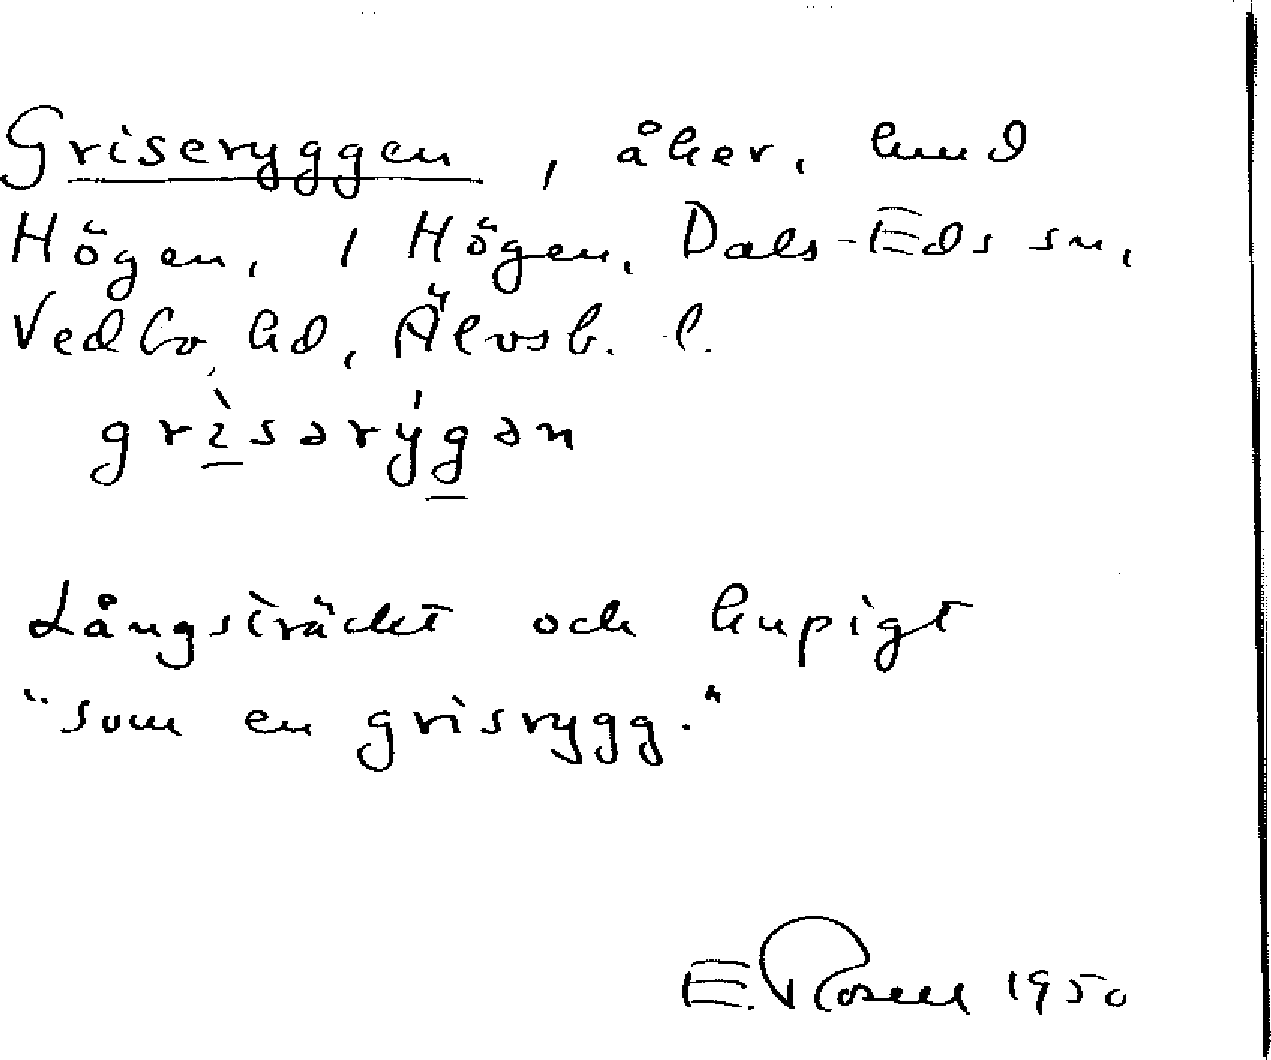 Griseryggen, åker, hmd
Högen, 1 Högen, Dals-Eds sn,
Vedbo hd, Älvsb. l.
grìsərýgən
Långsträckt och kupigt
"som en grisrygg."
E. Rosell 1950